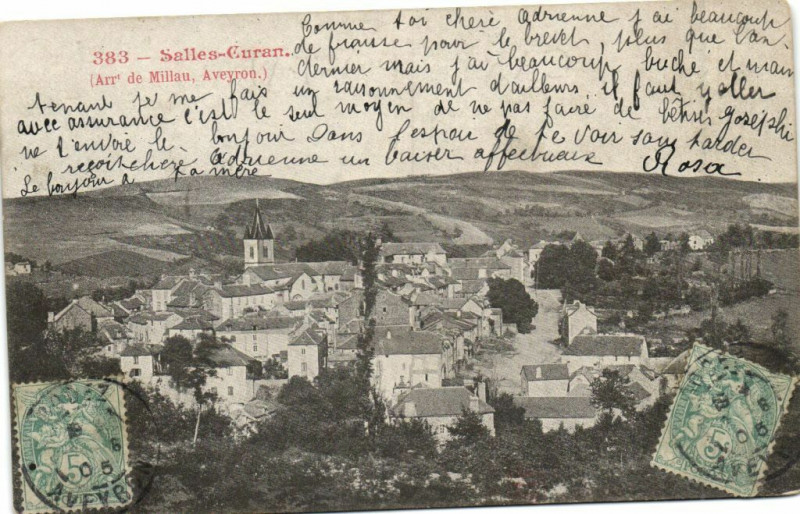 383 – Salles-Curan..
(Arrt de Millau, Aveyron.)
Comme toi chère Adrienne j'ai beaucoup
de frousse pour le brevet, plus que l'an
dernier mais j'ai beaucoup buché et main
tenant je me fais un raisonnement d'ailleurs il faut y aller
avec assurance c'est le seul moyen de ne pas faire de bêtises Joséphi
ne t'envoie le bonjour Dans l'espoir de te voir sans tarder
reçoit chère Adrienne un baiser affectueux
Rosa
Le bonjour à ta mère
5
05
AVEYRON
5
05
AVEY